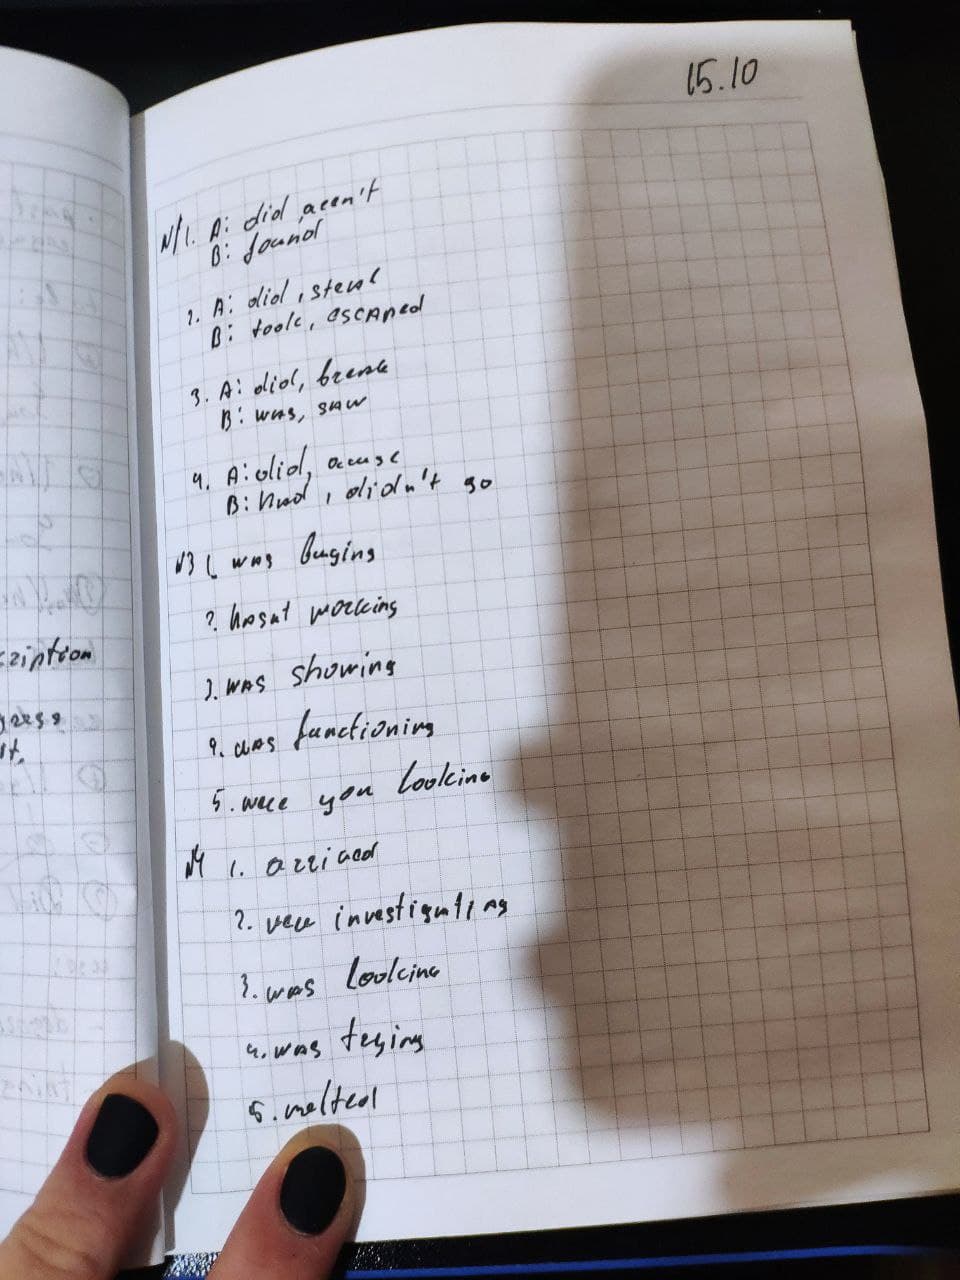 15.10
N1. A: did, aren't
B: found
2. A: did, steal
B: took, escaped
3. A: did, break
B: was, saw
4. A: did, accuse
B: had, didn't go
N3 1. was buying
2. hasnt working
3. was showing
4. was functioning
5. were you looking
N4 1. arrived
2. were investigating
3. was looking
4. was trying
5. melted
cription
gress